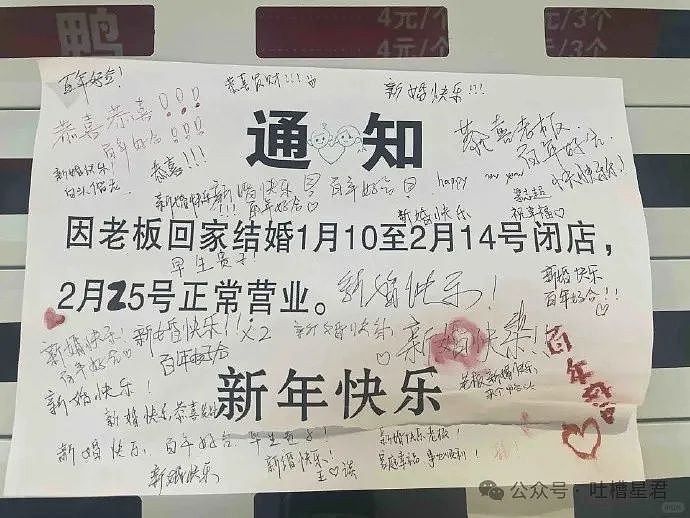 鸭
4元/个
元/3个
4元/个
元/3个
百年好合!
恭喜发财!!!
新婚快乐!!!
恭喜恭喜!!!
百年好合!!!
通知
恭喜老板
百年好合
新婚快乐!
白头偕老
恭喜!!!
新婚快乐
新婚快乐
百年好合
百年好合
happy new year
快快乐乐!
新婚快乐
祝幸福♡
因老板回家结婚1月10至2月14号闭店，
早生贵子!
新婚快乐
百年好合!!
2月25号正常营业。
新婚快乐!
新婚快乐!
百年好合♡
新婚快乐!!x2
百年好合
新婚快乐!
♡
新婚快乐!!
百年好合
♡
新婚快乐!
新年快乐
新婚快乐恭喜
新婚快乐、百年好合、早生贵子!
新婚快乐
新婚快乐!
王♡
新婚快乐老板!
家庭幸福
公众号·吐槽星君